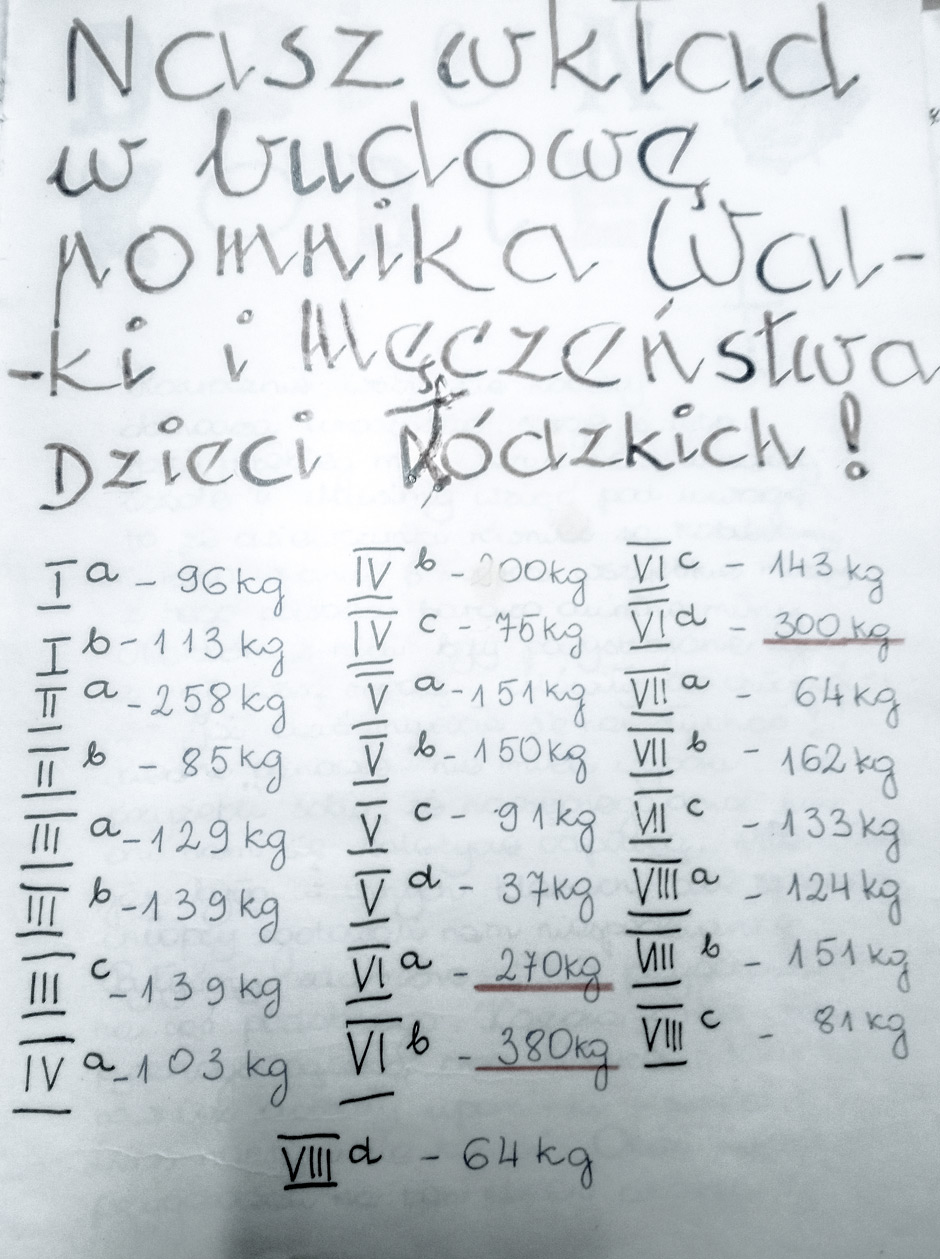 Nasz wkład
w budowę
pomnika Wal-
-ki i Męczeństwa
Dzieci Łódzkich!
I a - 96kg
I b - 113kg
II a - 258kg
II b - 85kg
III a - 129kg
III b - 139kg
III c - 139kg
IV a - 103kg
IV b - 200kg
IV c - 75kg
V a - 151kg
V b - 150kg
V c - 91kg
V d - 37kg
VI a - 270kg
VI b - 380kg
VI c - 143kg
VI d - 300kg
VII a - 64kg
VII b - 162kg
VII c - 133kg
VIII a - 124kg
VIII b - 151kg
VIII c - 81kg
VIII d - 64kg